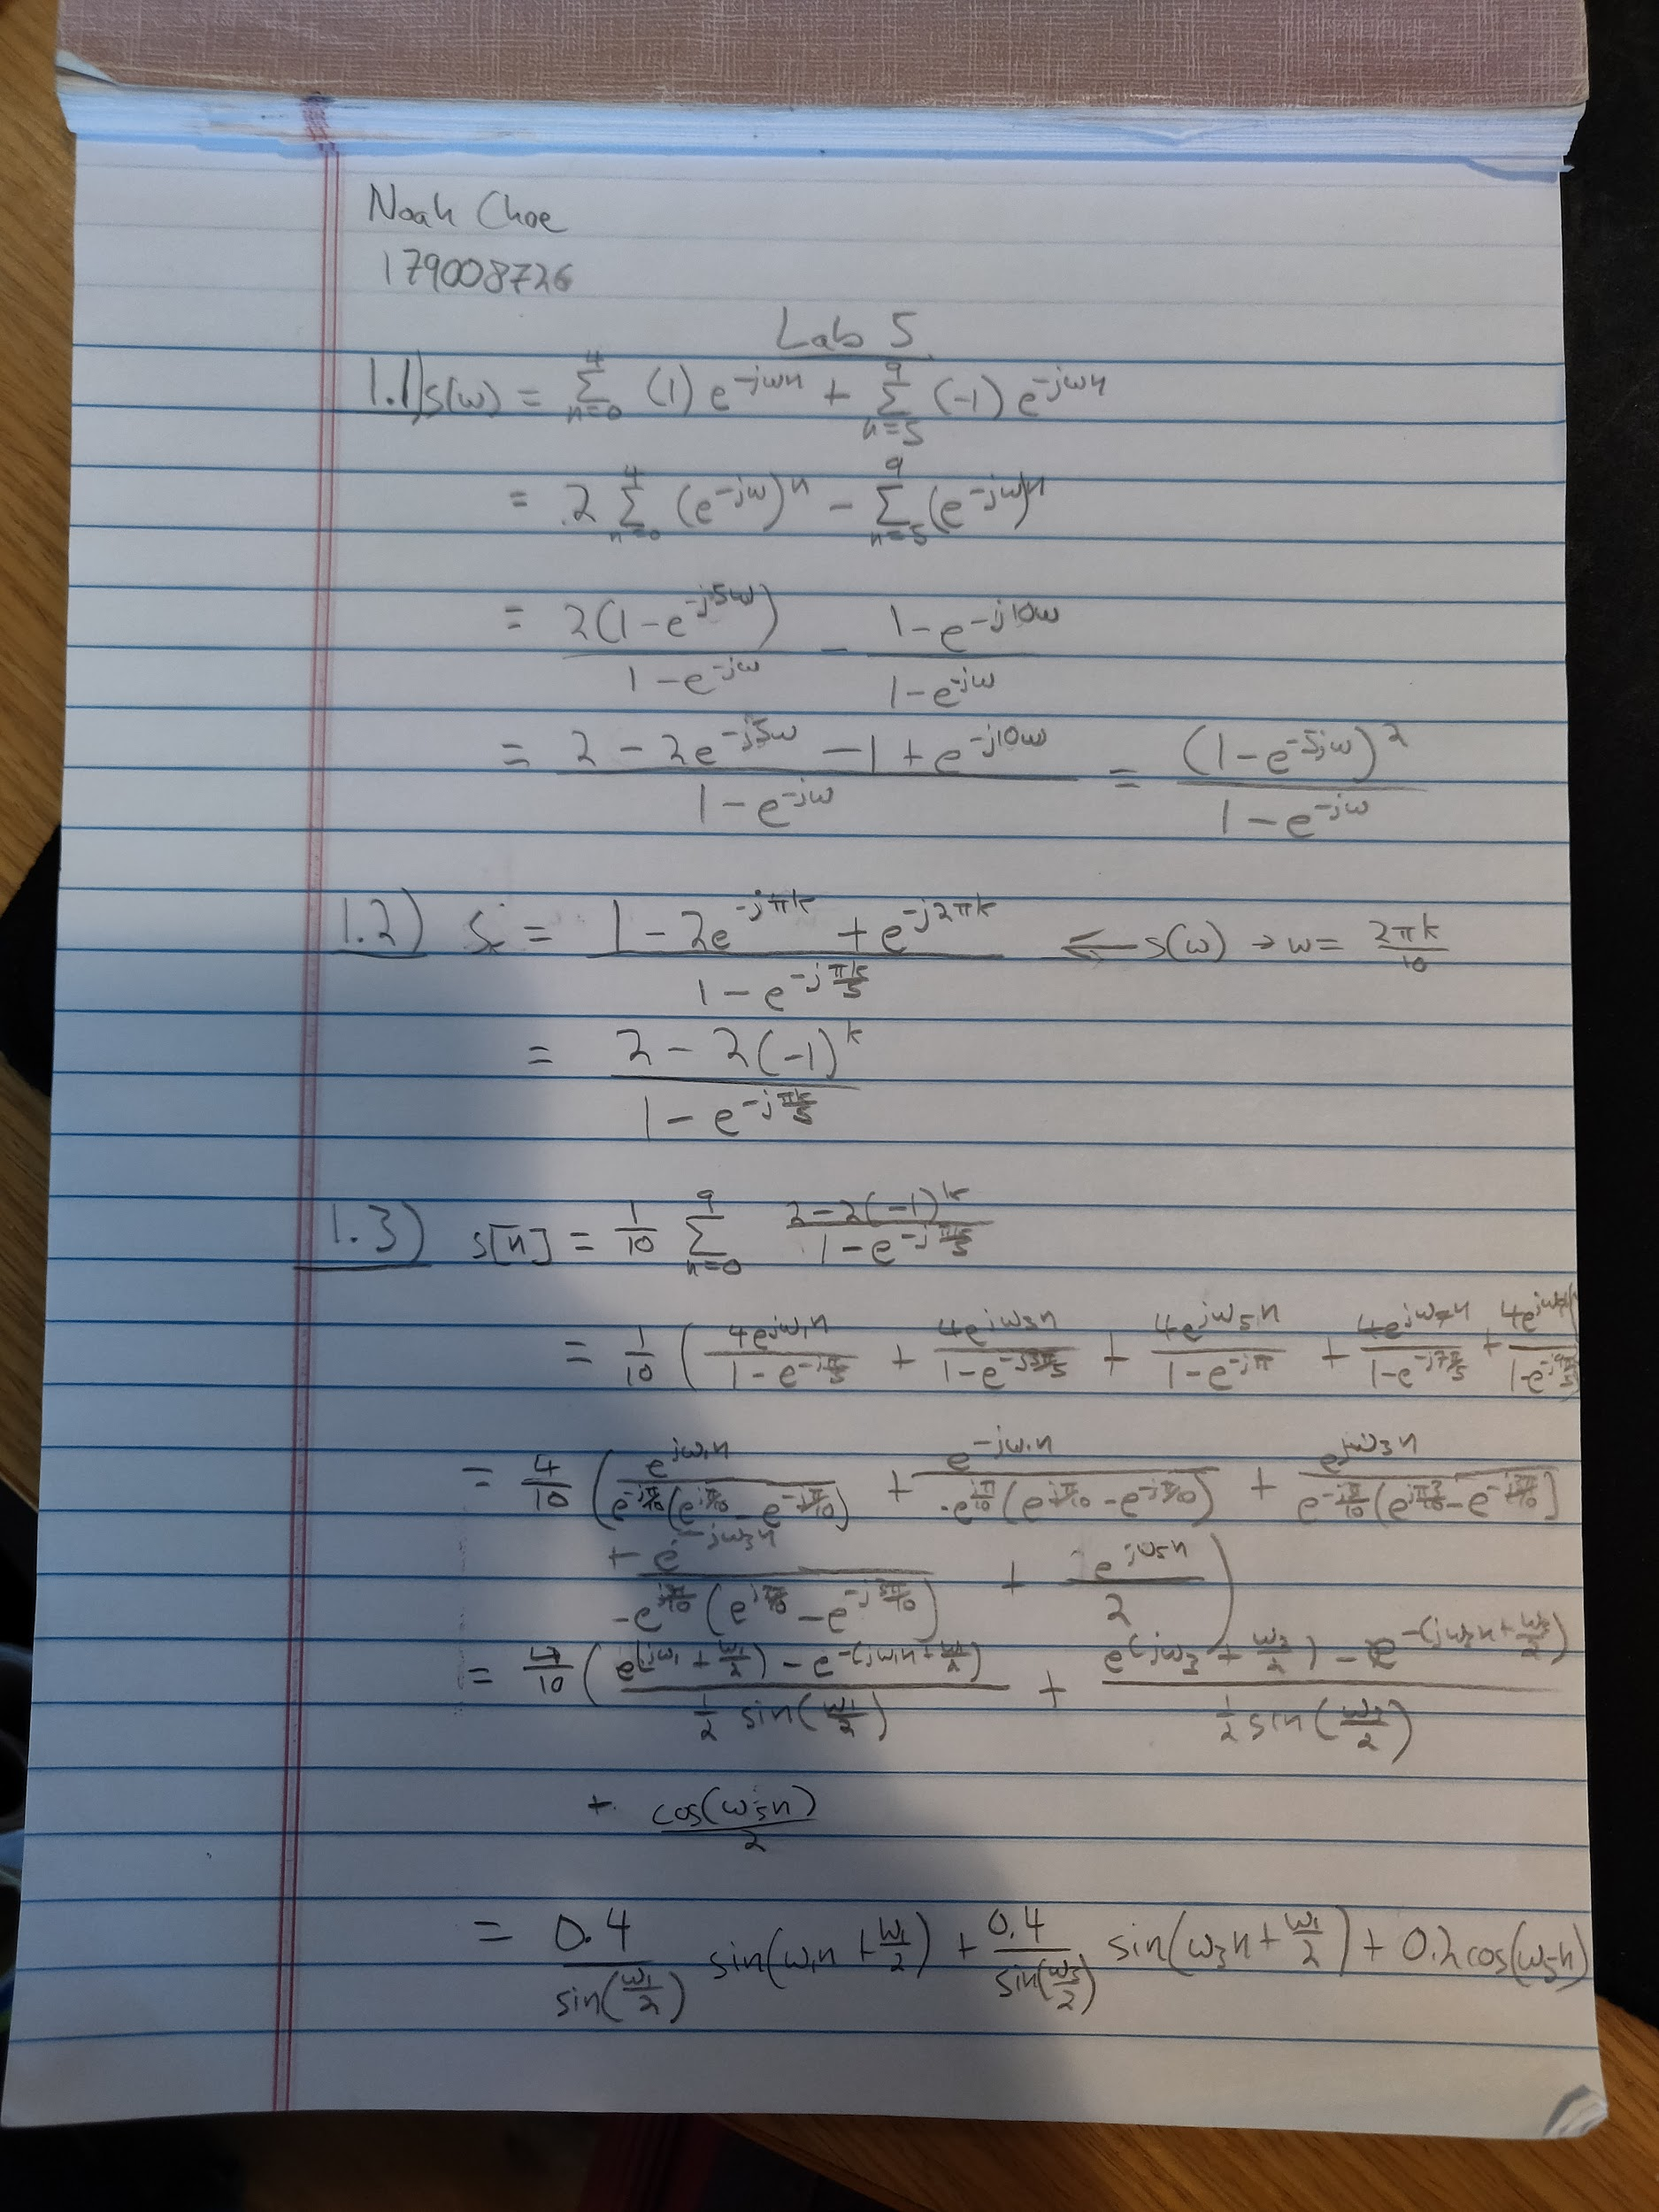 Noah Choe
179008726
Lab 5
1.1) s(ω) = Σ_{n=0}^{4} (1) e^{-jωn} + Σ_{n=5}^{9} (-1) e^{-jωn}
= 2 Σ_{n=0}^{4} (e^{-jω})^n - Σ_{n=5}^{9} (e^{-jω})^n
= 2(1-e^{-j5ω}) / (1-e^{-jω}) - (1-e^{-j10ω}) / (1-e^{-jω})
= (2 - 2e^{-j5ω} - 1 + e^{-j10ω}) / (1-e^{-jω}) = (1-e^{-5jω})^2 / (1-e^{-jω})
1.2) = (1 - 2e^{-jπk} + e^{-j2πk}) / (1-e^{-jπk/5}) ⇐ s(ω) → ω = 2πk/10
= (2 - 2(-1)^k) / (1-e^{-jπk/5})
1.3) s[n] = 1/10 Σ_{n=0}^{9} (2-2(-1)^k) / (1-e^{-jπk/5})
= 1/10 ( 4e^{jω₁n} / (1-e^{-jπ/5}) + 4e^{jω₃n} / (1-e^{-j3π/5}) + 4e^{jω₅n} / (1-e^{-jπ}) + 4e^{jω₇n} / (1-e^{-j7π/5}) + 4e / (1-e^{-j9π/5})
= 4/10 ( e^{jω₁n} / e^{-jπ/10}(e^{jπ/10} - e^{-jπ/10}) + e^{-jω₁n} / -e^{jπ/10}(e^{jπ/10} - e^{-jπ/10}) + e^{jω₃n}
+ e^{-jω₃n} + e^{jω₅n} / 2 )
= 4/10 ( (e^{(jω₁ + ω₁/2)} - e^{-(jω₁n + ω₁/2)}) / (1/2 sin(ω₁/2)) + (e^{(jω₃ + ω₃/2)} - e^{-(jω₃n + ω₃/2)}) / (1/2 sin(ω₃/2))
+ cos(ω₅n) / 2
= 0.4 / sin(ω₁/2) sin(ω₁n + ω₁/2) + 0.4 / sin(ω₃/2) sin(ω₃n + ω₁/2) + 0.2cos(ω₅n)